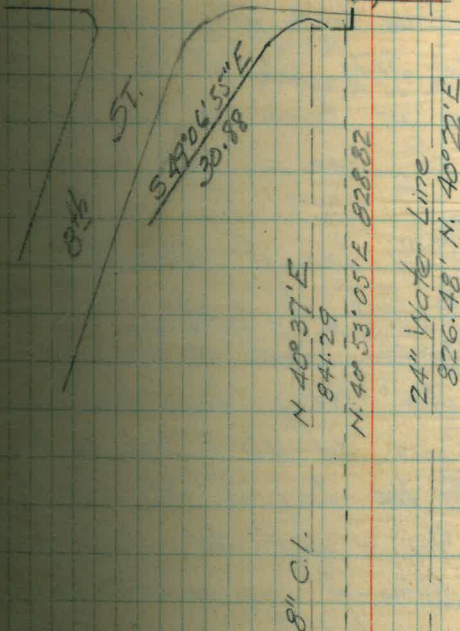 8th
ST.
S 49°06'55" E
30.88
8" C.I.
N 40°37' E
841.29
N. 40° 53' 05" E 828.82
24" Water Line
826.48' N. 40°22' E